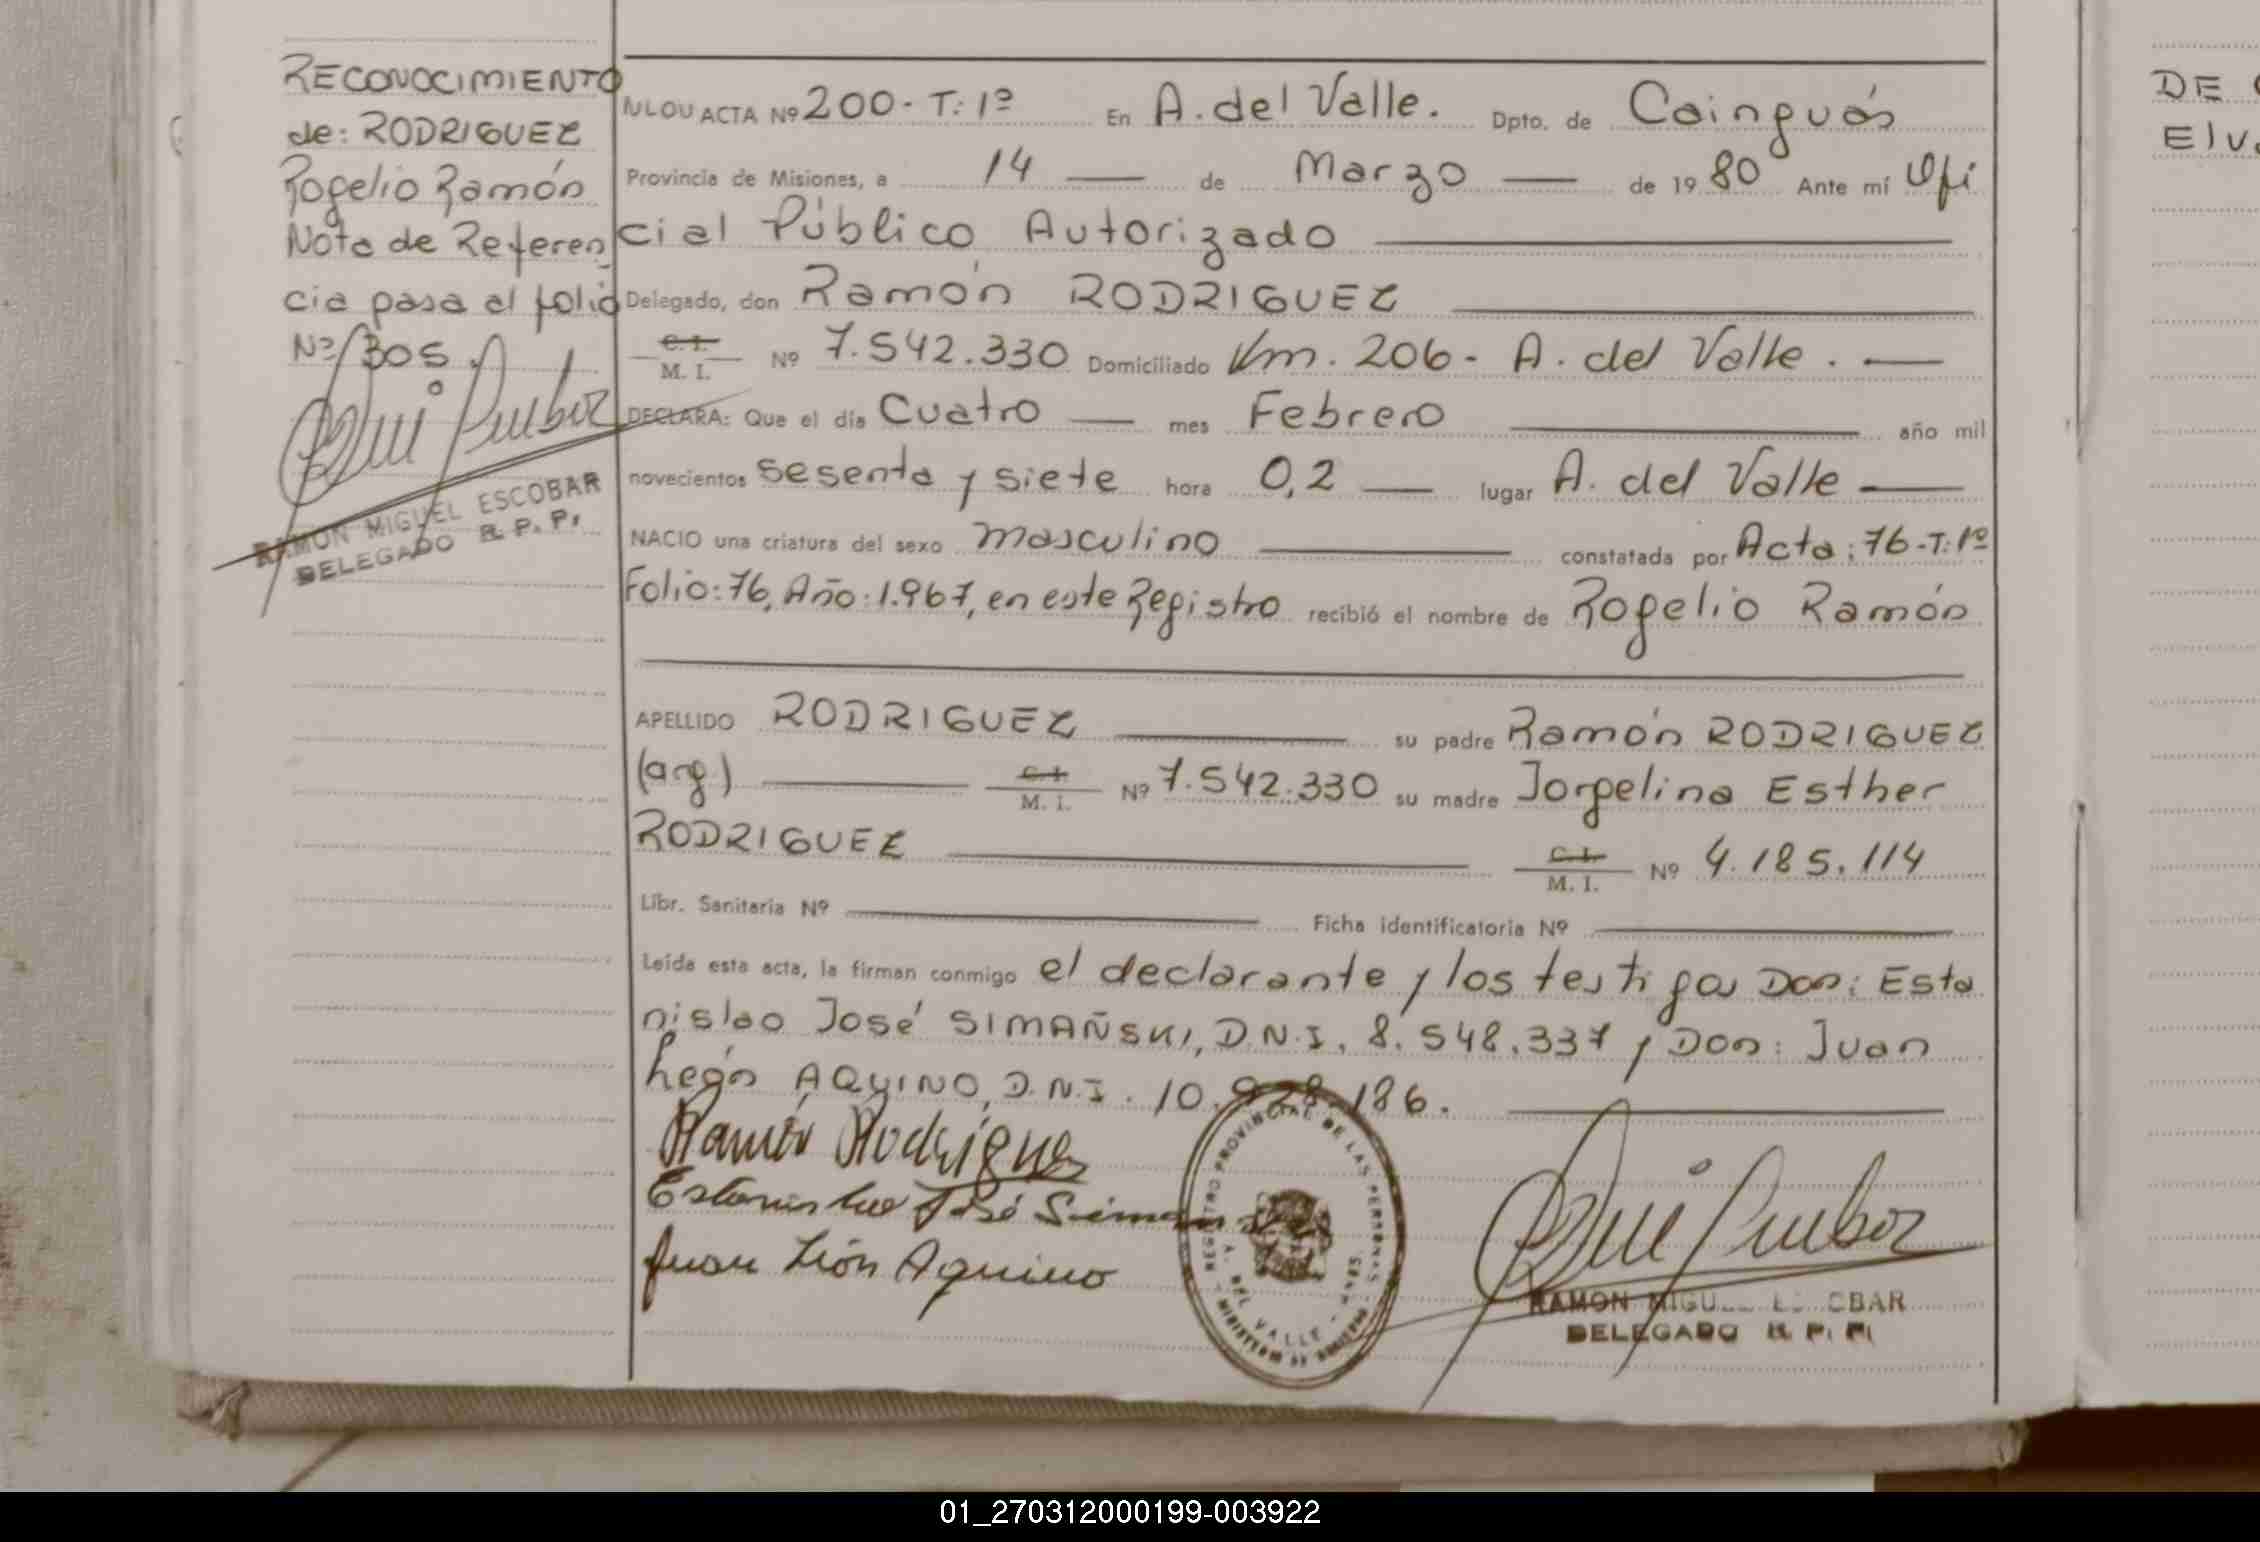 RECONOCIMIENTO
de: RODRIGUEZ
Rogelio Ramón
Nota de Referen
cia pasa al folio
Nº 305.
RAMON MIGUEL ESCOBAR
DELEGADO R. P. P.
ACTA Nº 200 - T: 1º En A. del Valle. Dpto. de Cainguás
Provincia de Misiones, a 14 — de Marzo — de 19 80 Ante mí Ofi
cial Público Autorizado
Delegado, don Ramón RODRIGUEZ
C. I. M. I. Nº 7.542.330 Domiciliado Km. 206 - A. del Valle. —
DECLARA: Que el día Cuatro — mes Febrero — año mil
novecientos sesenta y siete hora 0,2 — lugar A. del Valle —
NACIO una criatura del sexo masculino — constatada por Acta: 76 - T: 1º
Folio: 76, Año: 1.967, en este Registro recibió el nombre de Rogelio Ramón
APELLIDO RODRIGUEZ — su padre Ramón RODRIGUEZ
(arg.) — C. I. M. I. Nº 7.542.330 su madre Jorgelina Esther
RODRIGUEZ — C. I. M. I. Nº 4.185.114
Libr. Sanitaria Nº — Ficha identificatoria Nº —
Leída esta acta, la firman conmigo el declarante y los testigos Don: Esta
nislao José SIMAÑSKI, D.N.I. 8.548.337 y Don: Juan
León AQUINO, D.N.I. 10.928.186. —
Ramón Rodrígues
Estanislao José Simanski
Juan León Aquino
REGISTRO PROVINCIAL DE LAS PERSONAS
A. DEL VALLE
MINISTERIO DE GOBIERNO
RAMON MIGUEL ESCOBAR
DELEGADO R. P. P.
DE
Elv
01_270312000199-003922